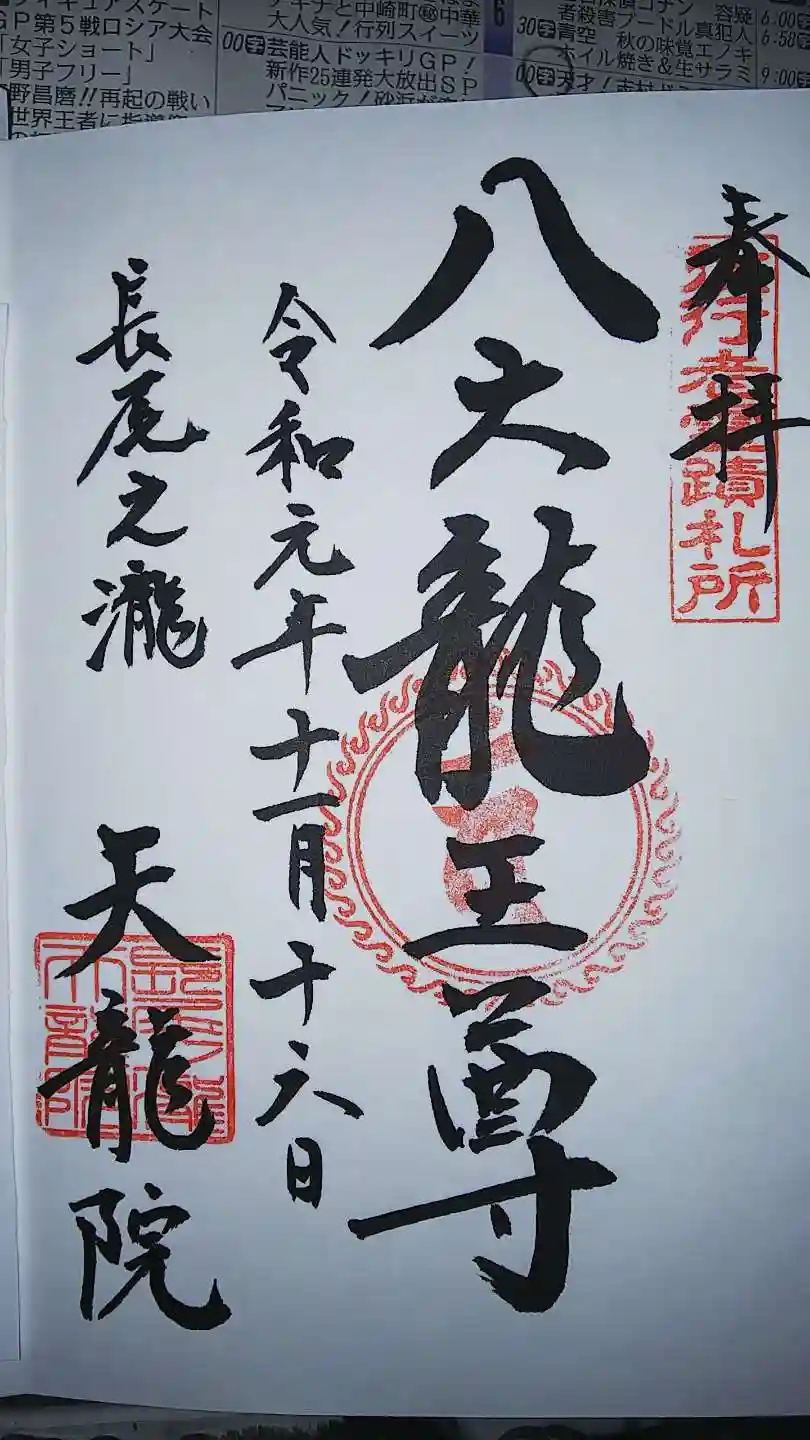 奉拝
霊蹟札所
八大龍王尊
令和元年十一月十六日
長尾之瀧
天龍院
GP第5戦ロシア大会
「女子ショート」
「男子フリー」
野昌磨!!再起の戦い
と中崎町㊙中華
大人気!行列スイーツ
00字芸能人ドッキリGP!
新作25連発大放出SP
パニック!砂浜が
6
容疑
者殺害プードル真犯人
30字青空 秋の味覚エノキ
ホイル焼き&生サラミ
00字天才!志村ど
6:00
6:58
9:00